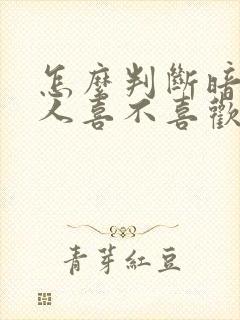 怎麼判斷暗
人喜不喜歡
青芽紅豆